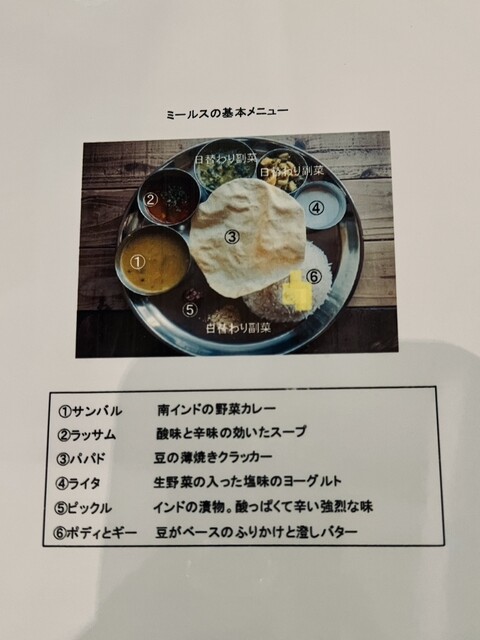 ミールスの基本メニュー
日替わり副菜
日替わり副菜
②
④
③
①
⑥
⑤
日替わり副菜
①サンバル 南インドの野菜カレー
②ラッサム 酸味と辛味の効いたスープ
③パパド 豆の薄焼きクラッカー
④ライタ 生野菜の入った塩味のヨーグルト
⑤ピックル インドの漬物。酸っぱくて辛い強烈な味
⑥ポディとギー 豆がベースのふりかけと澄しバター